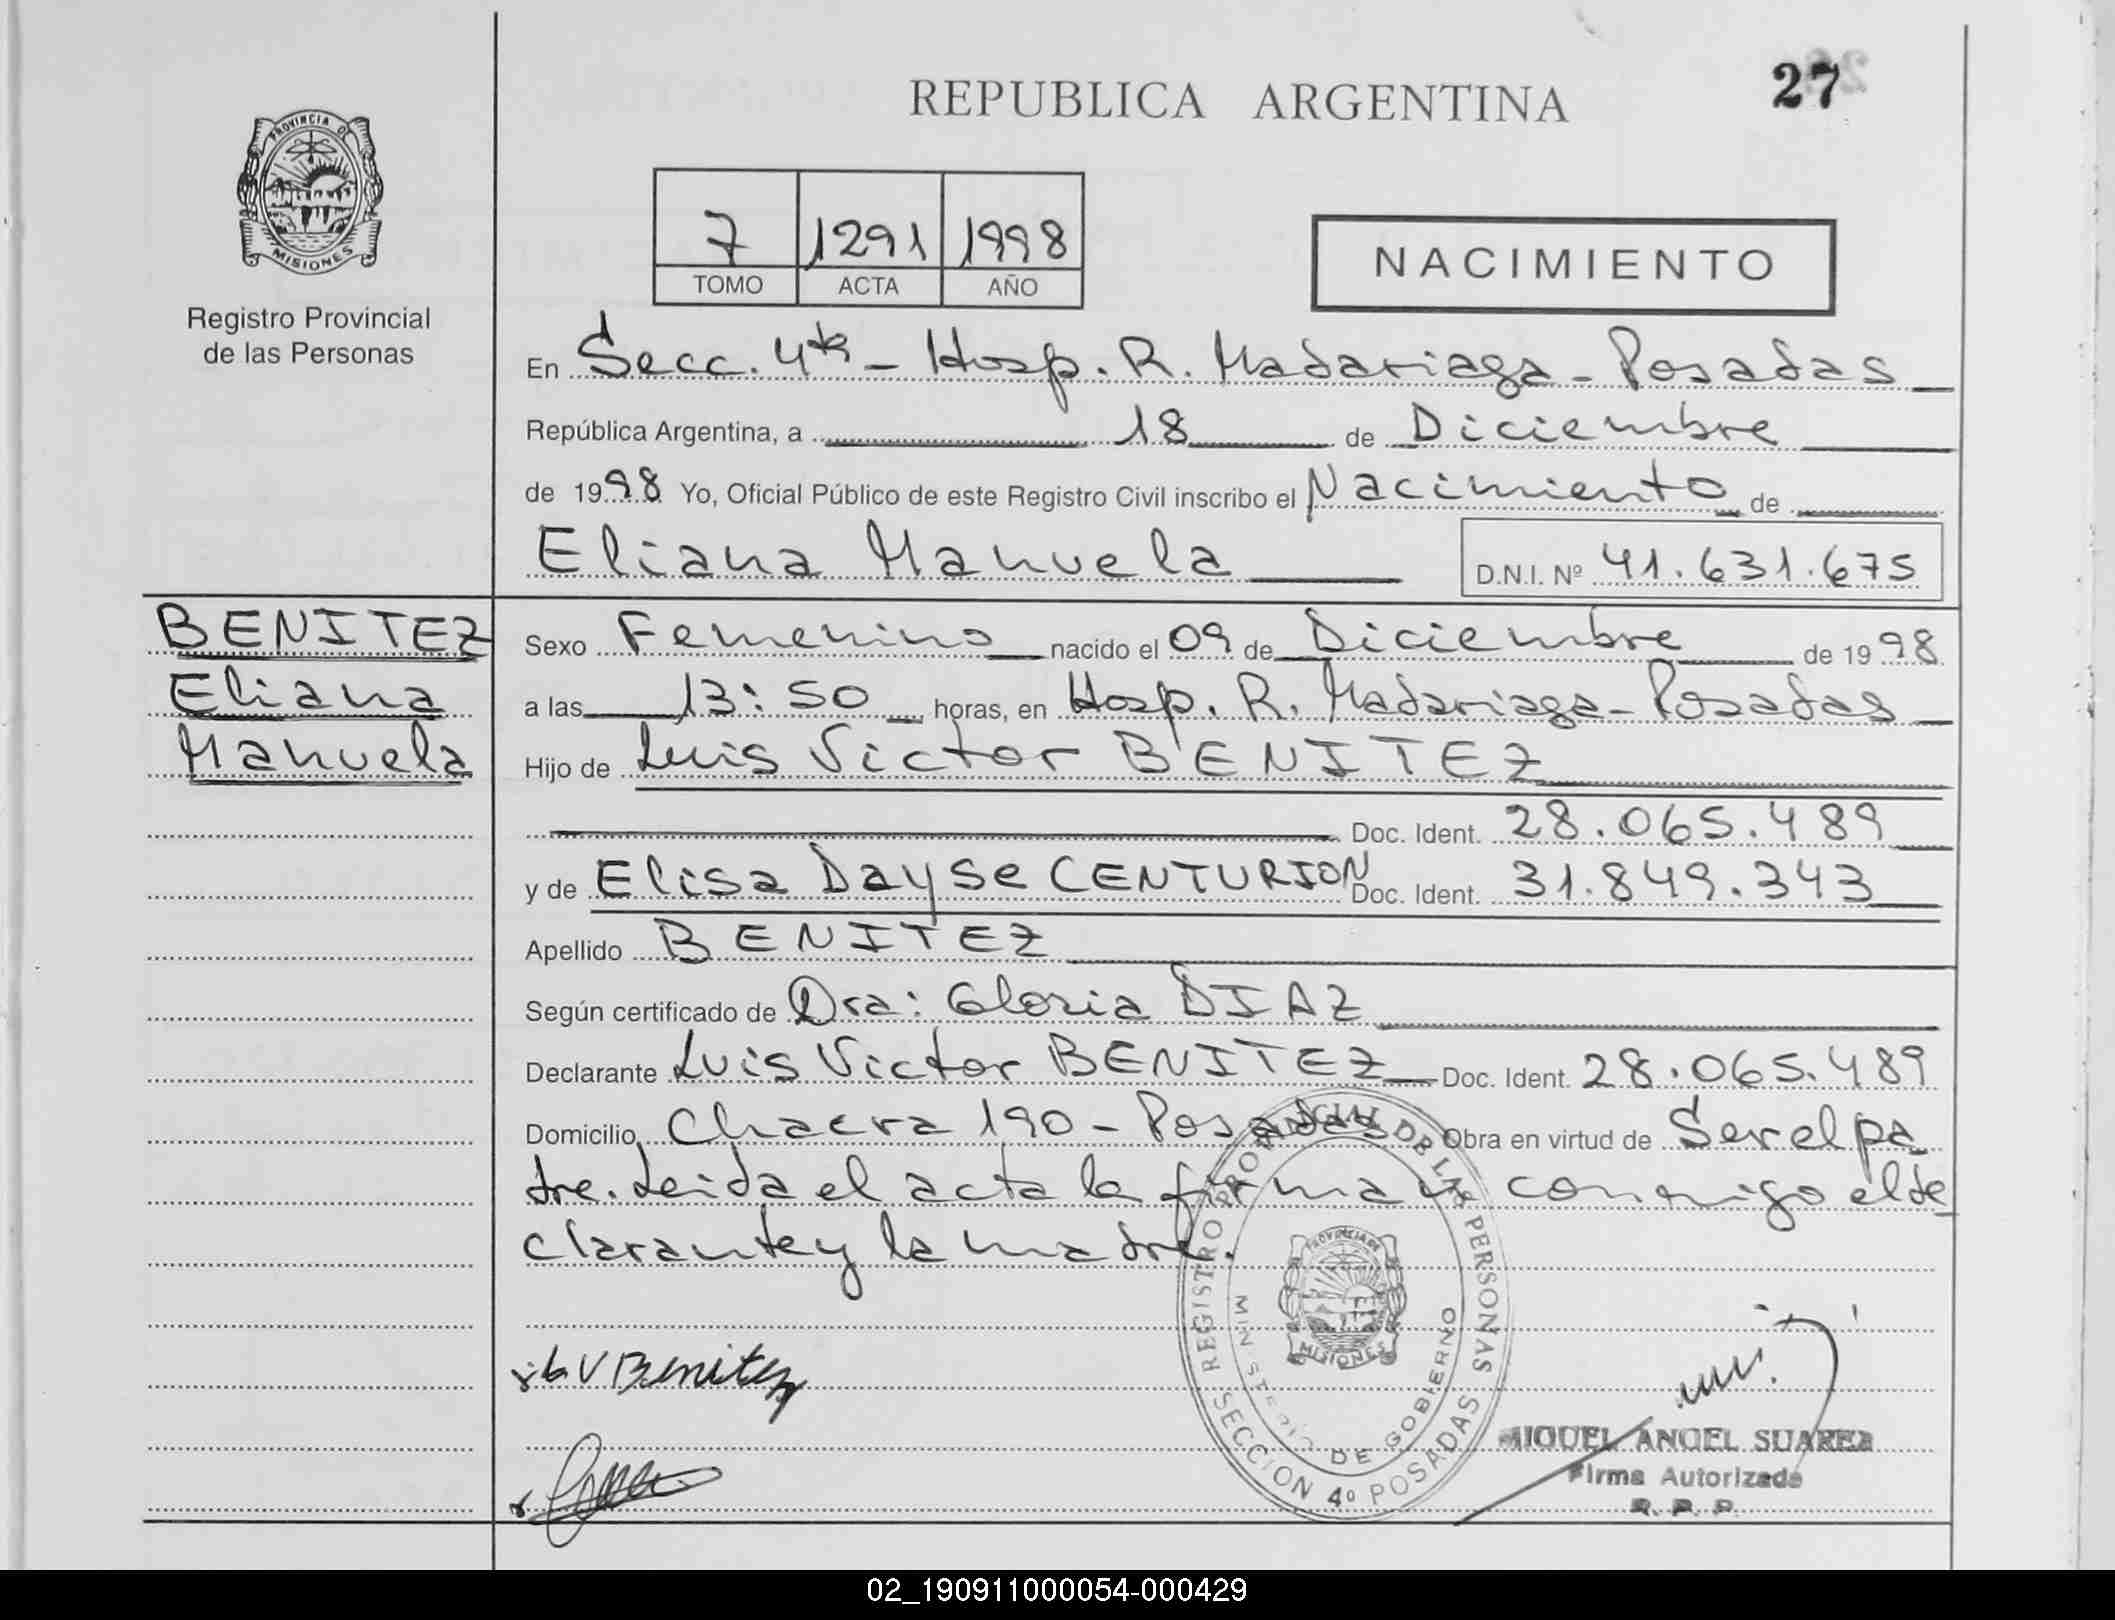 REPUBLICA ARGENTINA
27
PROVINCIA DE
MISIONES
Registro Provincial
de las Personas
7 1291 1998
TOMO ACTA AÑO
NACIMIENTO
En Secc. 4ta - Hosp. R. Madariaga - Posadas
República Argentina, a 18 de Diciembre
de 1998 Yo, Oficial Público de este Registro Civil inscribo el Nacimiento de
Eliana Manuela D.N.I. Nº 41.631.675
BENITEZ
Eliana
Manuela
Sexo Femenino nacido el 09 de Diciembre de 1998
a las 13:50 horas, en Hosp. R. Madariaga - Posadas
Hijo de Luis Victor BENITEZ
Doc. Ident. 28.065.489
y de Elisa Dayse CENTURION Doc. Ident. 31.849.343
Apellido BENITEZ
Según certificado de Dra: Gloria DIAZ
Declarante Luis Victor BENITEZ Doc. Ident. 28.065.489
Domicilio Chacra 190 - Posadas Obra en virtud de Ser el pa
dre. Leida el acta la firman conmigo el de
clarante y la madre.
REGISTRO PROVINCIAL DE LAS PERSONAS
SECCION 4º POSADAS
MINISTERIO DE GOBIERNO
PROVINCIA DE
MISIONES
L V Benitez
MIGUEL ANGEL SUAREZ
Firma Autorizada
R. P. P.
02_190911000054-000429